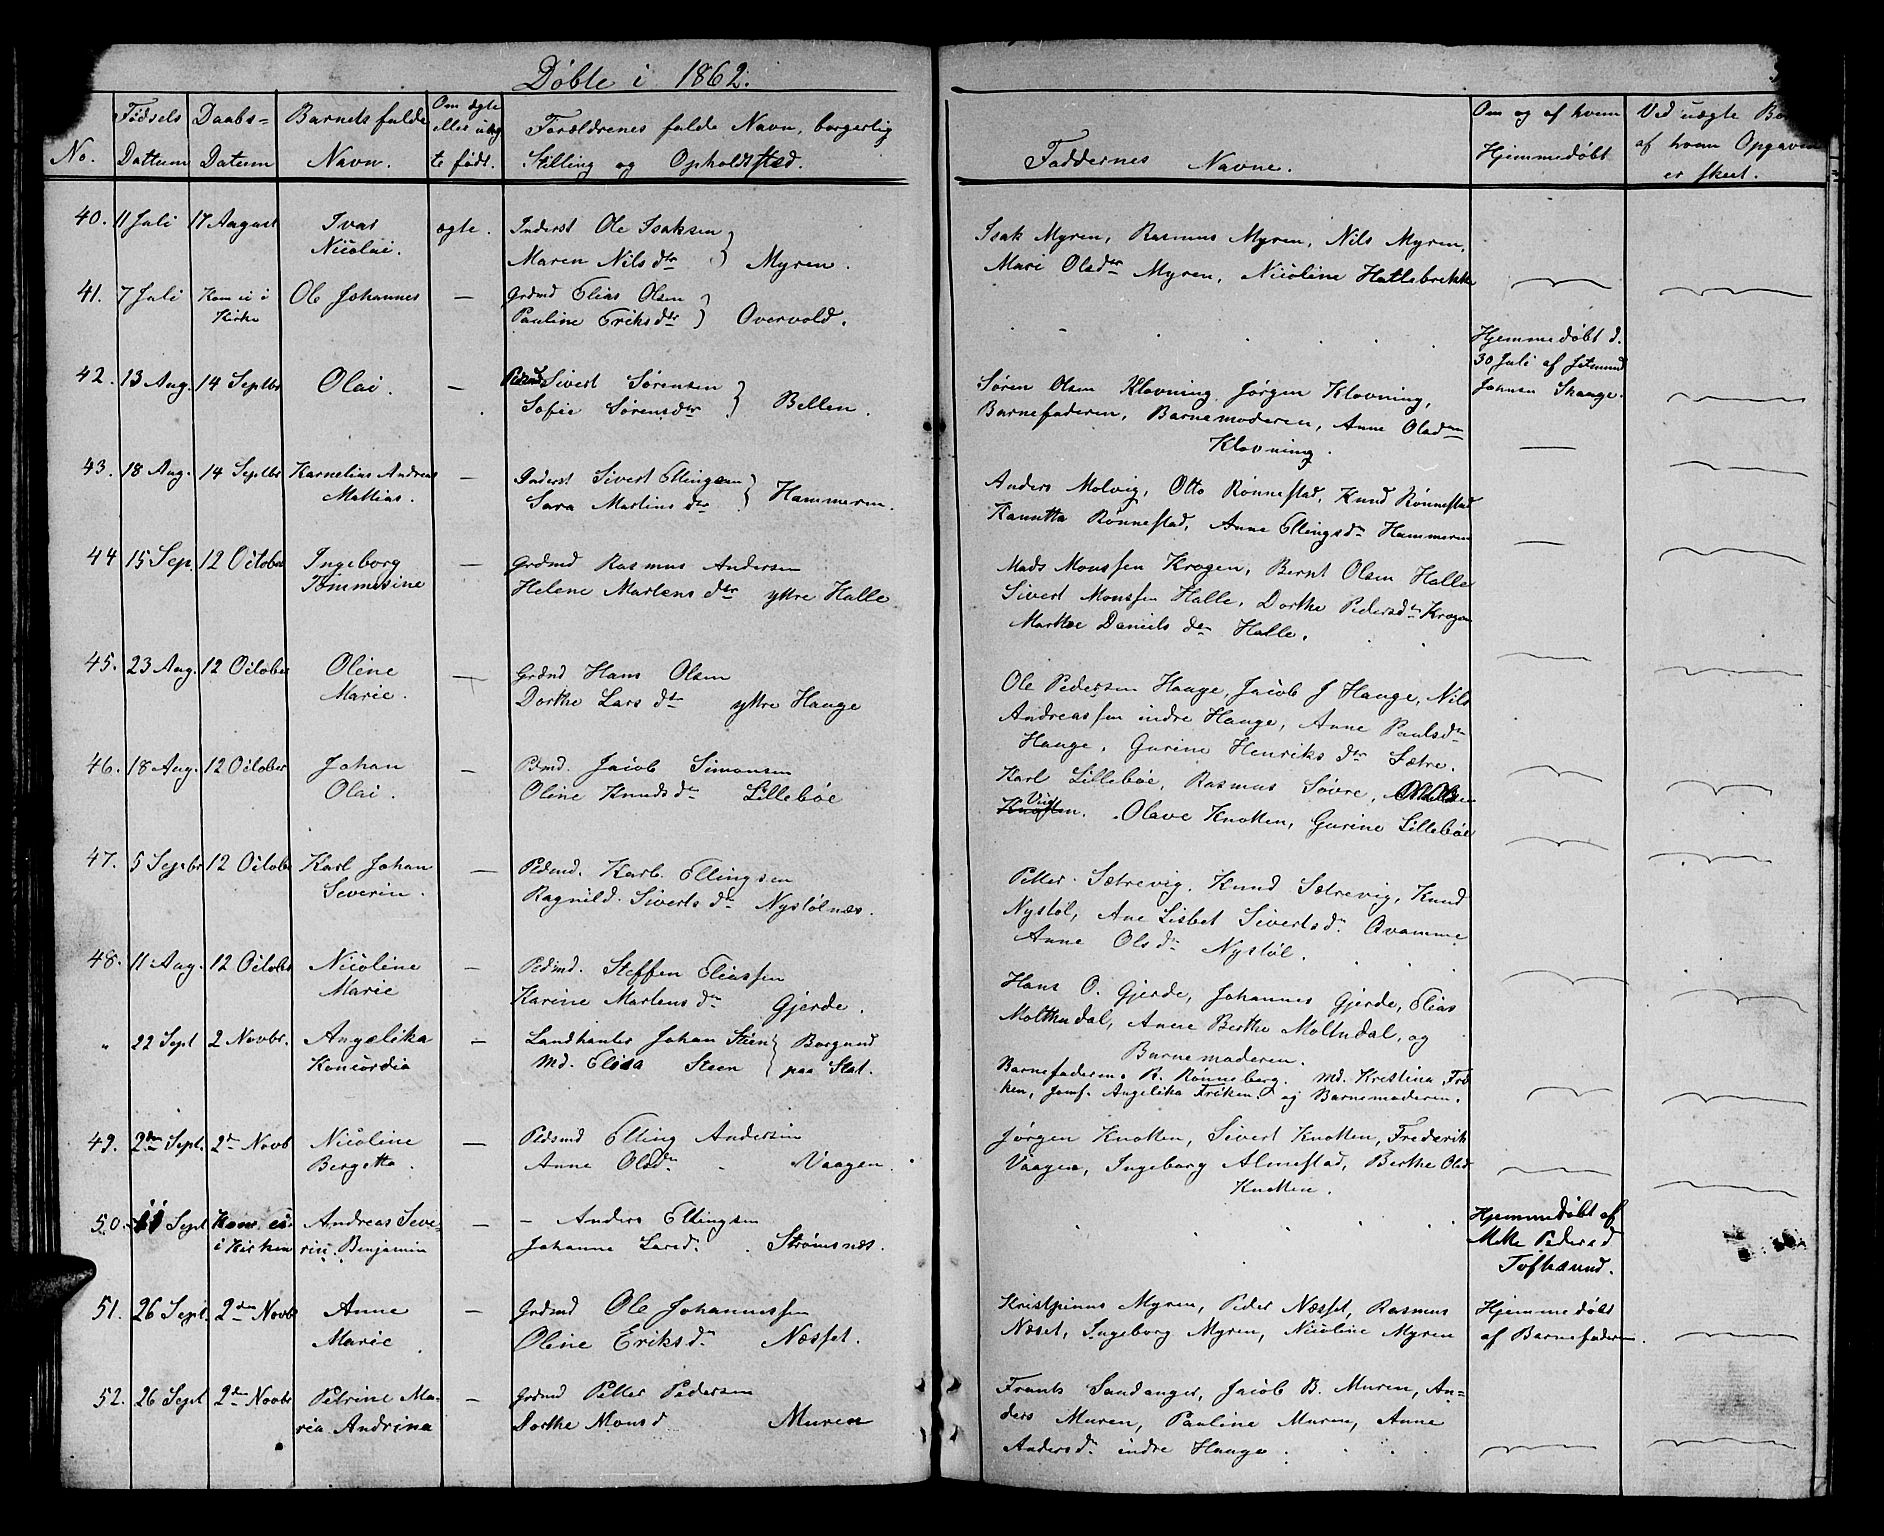 Døbte i 1862.
No.
Fødsels
Dattum
Daabs-
Datum
Barnets fulde
Navn.
Om ægte
eller uæg
te født.
Forældrenes fulde Navn, borgerlig
Stilling og Opholdssted.
Faddernes Navne.
Om og af hvem
Hjemmedøbt
Ved uægte
af hvem Opgaven
er skeet.
40. 11 Juli 17 August Ivar ægte. Inderst Ole Isaksen
Nicolai. Maren Nils dtr } Myren.
Isak Myren, Rasmus Myren, Nils Myren,
Mari Olsdtr Myren, Nicoline Hallebrekke
41. 7 Juli Kom ei i Ole Johannes — Grdmd Elias Olsen
Kirke Pauline Eriksdtr } Overvold.
Hjemmedøbt d.
30 Juli af
Johnsen Skaage.
42. 13 Aug. 14 Septbr Olai. — Sivert Sørensen
Sofie Sørensdtr } Bellen.
Søren Olsen Klovning, Jørgen Klovning,
Barnefaderen, Barnemoderen, Anne Olsdtr
Klovning.
43. 18 Aug. 14 Septbr Karnelius Andreas — Inderst Sivert Ellingsen
Mattias. Sara Martins dtr } Hammeren.
Anders Molvig, Otto Rønnestad, Knud Rønnestad
Kanutta Rønnestad, Anne Ellingsdtr Hammeren
44 15 Sep. 12 October Ingeborg — Grdmd Rasmus Andersen
Tommesine Helene Martens dtr yttre Halle
Mads Monssen Krogen, Bernt Olsen Halle
Sivert Monssen Halle, Dorthe Pedersdtr Krogen
Marthe Daniels dtr Halle.
45. 23 Aug. 12 October Oline — Grdmd Hans Olsen
Marie. Dorthe Lars dtr yttre Hauge
Ole Pedersen Hauge, Jacob J Hauge, Nils
Andreassen indre Hauge, Anne Paulsdtr
Hauge, Gurine Henriks dtr Sætre.
46. 18 Aug. 12 October Johan — Pdmd. Jacob Simonsen
Olai. Oline Knuds dtr Lillebøe
Karl Lillebøe, Rasmus Søvre,
Olave Knotten, Gurine Lillebøe
47. 5 Sepbr 12 Octobr Karl Johan — Pldmd. Karl Ellingsen
Severin. Ragnild Siverts dtr Nystølnæs.
Petter Sætrevig, Knud Sætrevig, Knud
Nystøl, Ane Lisbet Sivertsdtr Qvamme
Anne Olsdtr Nystøl.
48. 11 Aug. 12 Octobr Nicoline — Pldmd. Steffen Eliassen
Marie Karine Martens dtr Gjerde.
Hans O. Gjerde, Johannes Gjerde, Elias
Molthudal, Anne Berthe Moltudal, og
Barnemoderen.
„ 22 Sept 2 Novbr. Angelika — Landhanler Johan Steen
Koncordia Md. Elisa Steen } Borgund
paa Stat.
Barnefaderen, R. Rønneberg. Md. Kristina Frö
ken, Jomf. Angelika Friken og Barnemoderen.
49. 2den Sept. 2den Novb Nicoline — Pldsmd Elling Andersen
Bergetta. Anne Olsdtr Vaagen.
Jørgen Knotten, Sivert Knotten, Frederik
Vaagen, Ingeborg Almestad, Berthe Olsd
Knotten.
50. 11 Sept Kom ei Andreas Seve- — — Anders Ellingsen
i Kirken rin Benjamin Johanne Larsd. Strømsnæs.
Hjemmedøbt af
Mette Pedersd
Toftesund.
51. 26 Sept. 2den Novb Anne — Grdmd Ole Johannessen
Marie Oline Eriksdtr Næsset.
Kristpinus Myren, Peder Næsset, Rasmus
Næset, Ingeborg Myren, Nicoline Myren
Hjemmedøbt
af Barnefaderen.
52. 26 Sept 2den Novbr Petrine Ma- — Grdmd Petter Pedersen
ria Andrina Dorthe Monsd Muren
Frants Sandanger, Jacob B. Muren, An-
ders Muren, Pauline Muren, Anne
Andersdtr indre Hauge.